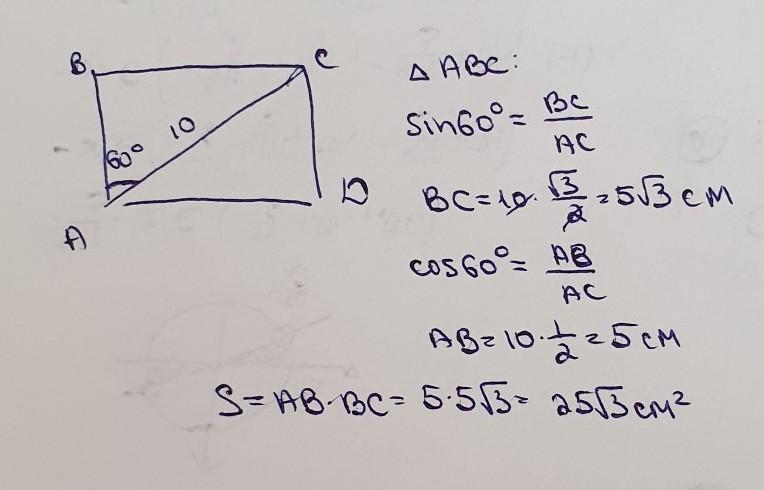 B
C
60°
10
A
D
Δ ABC:
sin60° = BC/AC
BC = 10 · √3/2 = 5√3 см
cos60° = AB/AC
AB = 10 · 1/2 = 5 см
S = AB · BC = 5 · 5√3 = 25√3 см²